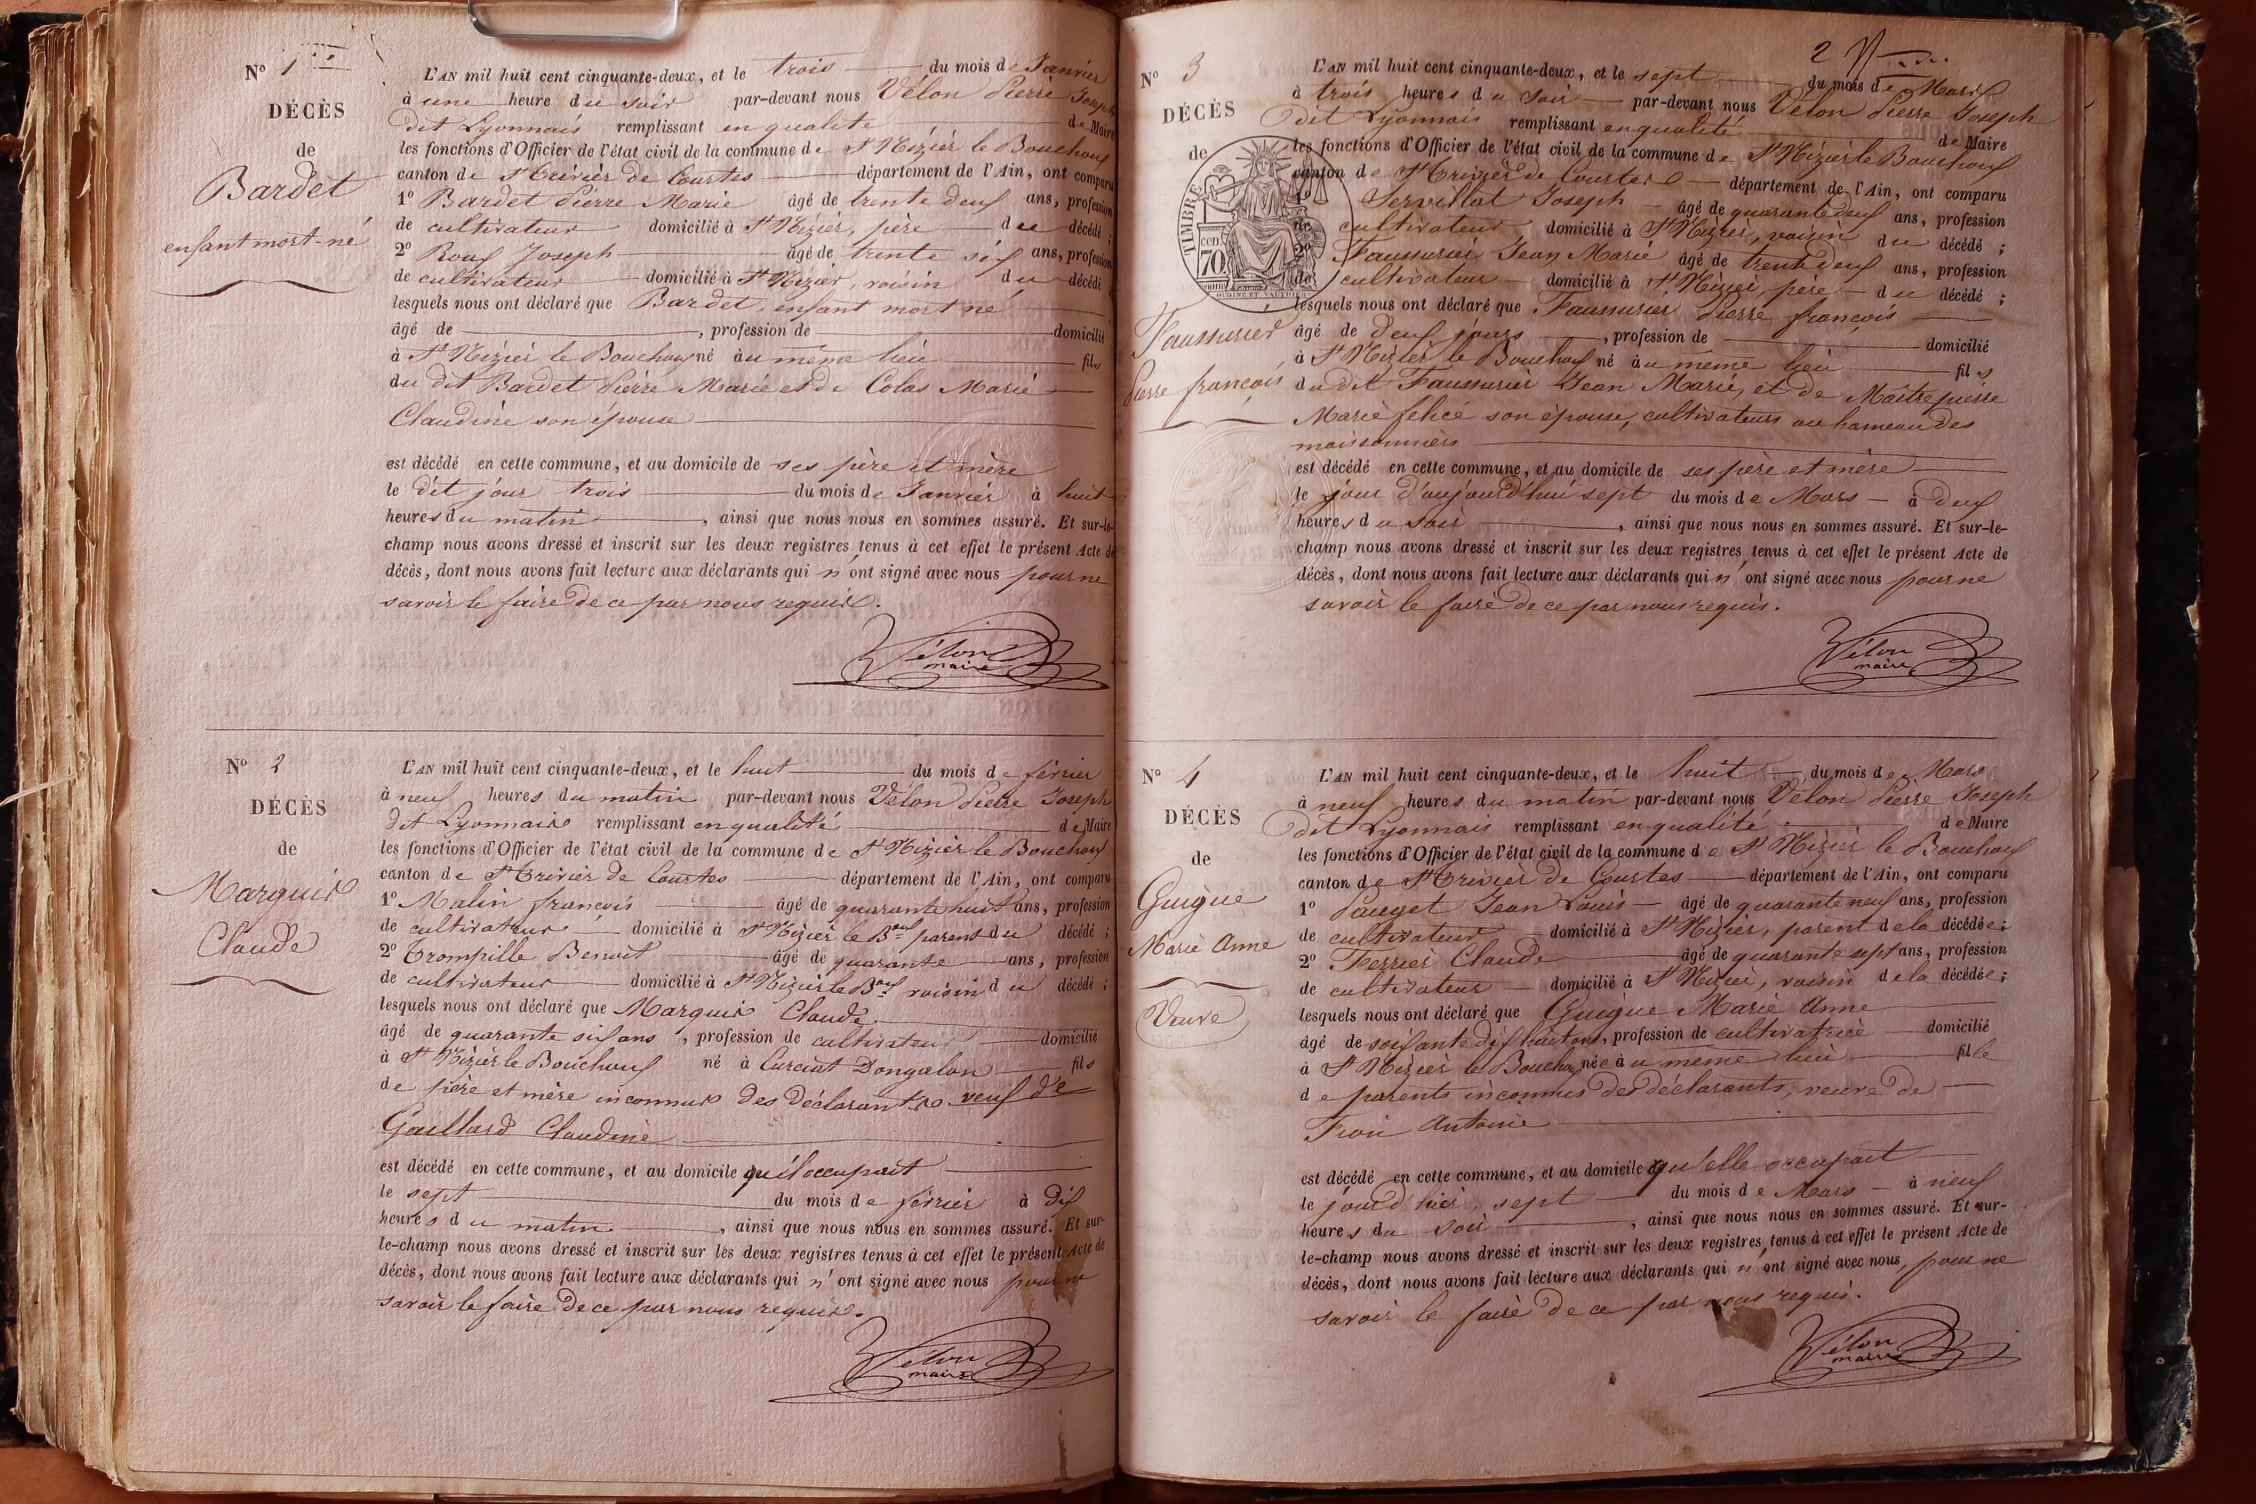 Nº 1er
DÉCÈS
de
Bardet
enfant mort-né
L'AN mil huit cent cinquante-deux, et le trois du mois de Janvier
à une heure du soir par-devant nous Vélon Pierre Joseph
dit Lyonnais remplissant en qualité de Maire
les fonctions d'Officier de l'état civil de la commune de St Nizier le Bouchoux
canton de St Trivier de Courtes département de l'Ain, ont comparu
1º Bardet Pierre Marie âgé de trente deux ans, profession
de cultivateur domicilié à St Nizier, père du décédé ;
2º Roux Joseph âgé de trente six ans, profession
de cultivateur domicilié à St Nizier, voisin du décédé
lesquels nous ont déclaré que Bardet, enfant mort né
âgé de , profession de domicilié
à St Nizier le Bouchoux né au même lieu fils
du dit Bardet Pierre Marie et de Colas Marie
Claudine son épouse
est décédé en cette commune, et au domicile de ses père et mère
le dit jour trois du mois de Janvier à huit
heures du matin , ainsi que nous nous en sommes assuré. Et sur-le-
champ nous avons dressé et inscrit sur les deux registres tenus à cet effet le présent Acte de
décès, dont nous avons fait lecture aux déclarants qui n'ont signé avec nous pour ne
savoir le faire de ce par nous requis.
Vélon
maire
Nº 2
DÉCÈS
de
Marquis
Claude
L'AN mil huit cent cinquante-deux, et le huit du mois de février
à neuf heures du matin par-devant nous Vélon Pierre Joseph
dit Lyonnais remplissant en qualité de Maire
les fonctions d'Officier de l'état civil de la commune de St Nizier le Bouchoux
canton de St Trivier de Courtes département de l'Ain, ont comparu
1º Malin françois âgé de quarante huit ans, profession
de cultivateur domicilié à St Nizier le Boux parent du décédé ;
2º Trompille Benoit âgé de quarante ans, profession
de cultivateur domicilié à St Nizier le Boux voisin du décédé ;
lesquels nous ont déclaré que Marquis Claude
âgé de quarante six ans , profession de cultivateur domicilié
à St Nizier le Bouchoux né à Curciat Dongalon fils
de père et mère inconnus des déclarants veuf de
Gaillard Claudine
est décédé en cette commune, et au domicile qu'il occupait
le sept du mois de février à dix
heures du matin , ainsi que nous nous en sommes assuré. Et sur-
le-champ nous avons dressé et inscrit sur les deux registres tenus à cet effet le présent Acte de
décès, dont nous avons fait lecture aux déclarants qui n'ont signé avec nous pour ne
savoir le faire de ce par nous requis.
Vélon
maire
2
Nº 3
DÉCÈS
de
TIMBRE
cen
70
Faussurier
Pierre françois
L'AN mil huit cent cinquante-deux, et le sept du mois de Mars
à trois heures du soir par-devant nous Vélon Pierre Joseph
dit Lyonnais remplissant en qualité de Maire
les fonctions d'Officier de l'état civil de la commune de St Nizier le Bouchoux
canton de St Trivier de Courtes département de l'Ain, ont comparu
Servillat Joseph âgé de quarante deux ans, profession
de cultivateur domicilié à St Nizier, voisin du décédé ;
2º Faussurier Jean Marie âgé de trente deux ans, profession
de cultivateur domicilié à St Nizier, père du décédé ;
lesquels nous ont déclaré que Faussurier Pierre françois
âgé de deux jours , profession de domicilié
à St Nizier le Bouchoux né au même lieu fils
du dit Faussurier Jean Marie, et de Maitrepierre
Marie félicé son épouse, cultivateurs au hameau des
maisonniers
est décédé en cette commune, et au domicile de ses père et mère
le jour d'aujourd'hui sept du mois de Mars à deux
heures du soir , ainsi que nous nous en sommes assuré. Et sur-le-
champ nous avons dressé et inscrit sur les deux registres tenus à cet effet le présent Acte de
décès, dont nous avons fait lecture aux déclarants qui n'ont signé avec nous pour ne
savoir le faire de ce par nous requis.
Vélon
maire
Nº 4
DÉCÈS
de
Guigue
Marie Anne
Veuve
L'AN mil huit cent cinquante-deux, et le huit du mois de Mars
à neuf heures du matin par-devant nous Vélon Pierre Joseph
dit Lyonnais remplissant en qualité de Maire
les fonctions d'Officier de l'état civil de la commune de St Nizier le Bouchoux
canton de St Trivier de Courtes département de l'Ain, ont comparu
1º Pauget Jean Louis âgé de quarante neuf ans, profession
de cultivateur domicilié à St Nizier, parent de la décédée ;
2º Ferrier Claude âgé de quarante sept ans, profession
de cultivateur domicilié à St Nizier, voisin de la décédée ;
lesquels nous ont déclaré que Guigue Marie Anne
âgé de soixante dix huit ans, profession de cultivatrice domicilié
à St Nizier le Bouchoux née au même lieu fille
de parents inconnus des déclarants, veuve de
Antoine
est décédé en cette commune, et au domicile qu'elle occupait
le jour d'hier, sept du mois de Mars à neuf
heures du soir , ainsi que nous nous en sommes assuré. Et sur-
le-champ nous avons dressé et inscrit sur les deux registres tenus à cet effet le présent Acte de
décès, dont nous avons fait lecture aux déclarants qui n'ont signé avec nous pour ne
savoir le faire de ce par nous requis.
Vélon
maire